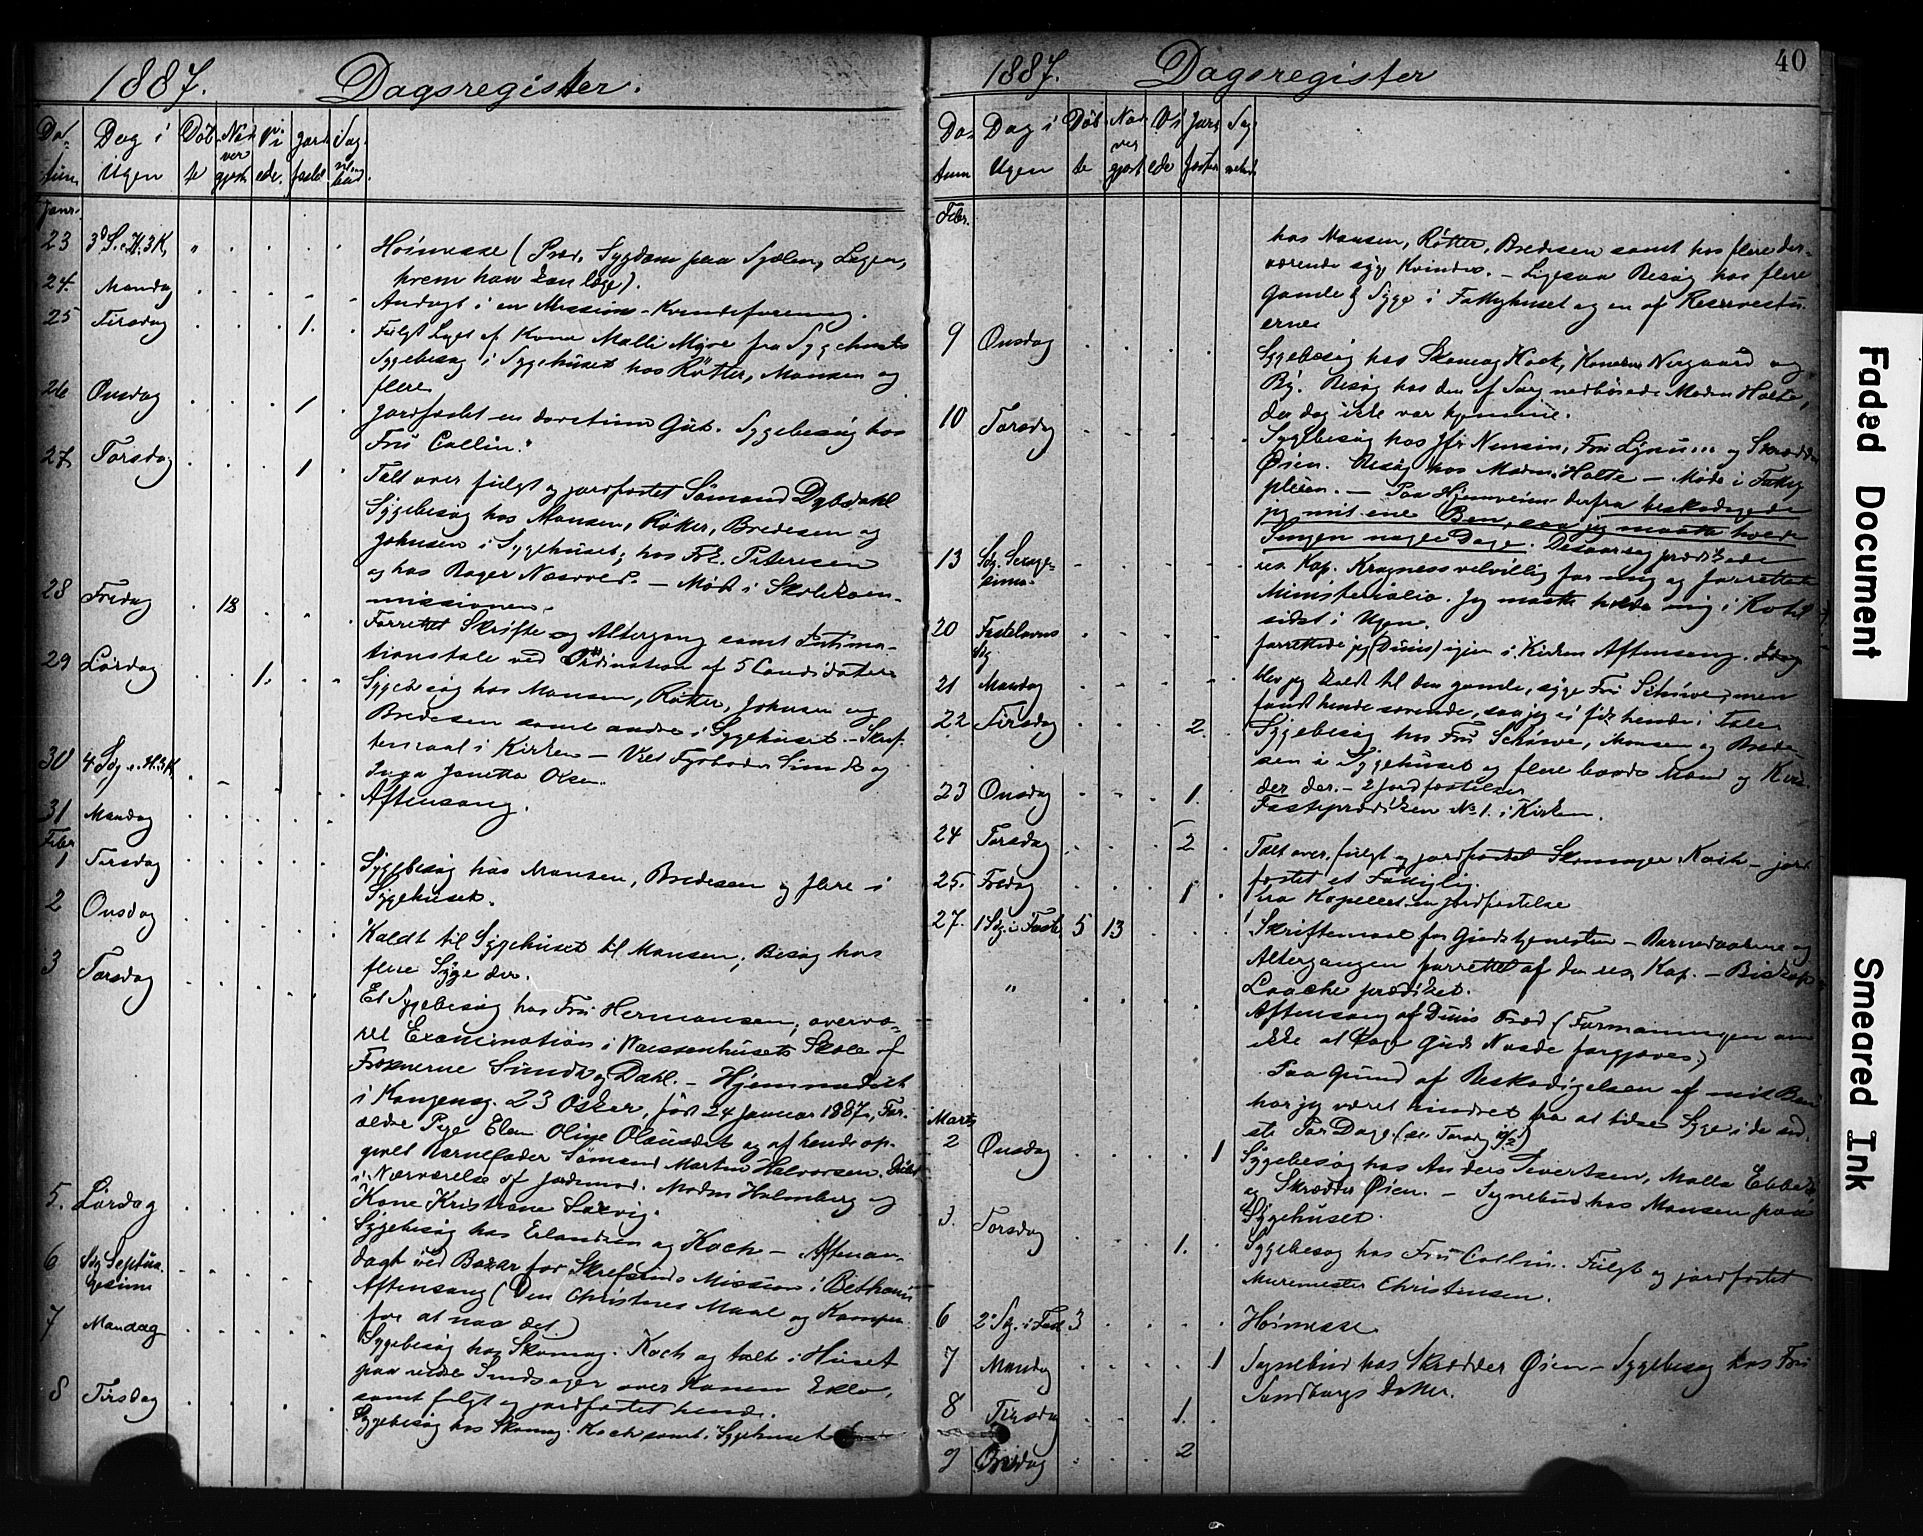 1887. Dagsregister.
Da- Dag i Døb Nad Vi Jord Sog
tum Ugen te ver ede. fæstet ne
gjort bud
Janr.
23 3d S. e. H.3K. " Høimesse (Præd. Sygdom paa Sjælen, Lægen,
hvem han kan læge).
24. Mandag Andagt i en Missions-Kvindeforening.
25 Tirsdag 1. Fulgt Liget af Kona Malli Myre fra Sygehuset
Sygebesøg i Sygehuset hos Røtter, Monsen og
flere
26 Onsdag 1 Jordfæstet en Gut. Sygebesøg hos
Fru Collin.
27 Torsdag 1 Talt over fulgt og jordfæstet Sømand Dybdahl
Sygebesøg hos Monsen, Røtter, Bredesen og
Johnsen i Sygehuset; hos Frk. Petersen
og hos Bager Næsvold. - Møde i Skolekom-
missionen.
28 Fredag 18 Forrettet Skrifte og Altergang samt Intima-
tionstale ved Ordination af 5 Candidater
29 Lørdag 1. Sygebesøg hos Monsen, Røtter, Johnsen og
Bredesen samt andre i Sygehuset. - Skrif-
temaal i Kirken - Viet Fyrbøder og
Inga Janetta Olsen.
30 4 Sdg e. H.3K. Aftensang.
31 Mandag
Febr
1 Tirsdag Sygebesøg hos Monsen, Bredesen og flere i
Sygehuset.
2 Onsdag
Kaldt til Sygehuset til Monsen; Besøg hos
flere Syge der.
3 Torsdag Et Sygebesøg hos Fru Hermansen; overvæ-
ret Examination i Waisenhusets Skole af
Frøknerne Sundt og Dahl. - Hjemmedøbt
i Kongensg. 23 Oskar, født 24 Januar 1887, For-
ældre Pige Elen Oline Olausdat. og af hende op-
givet Barnefader Sømand Martin Halvorsen. Døbt
i Nærværelse af Jordemod. Madm Holmberg og
Kone Kristiane Solvig.
5. Lørdag Sygebesøg hos Erlandsen og Koch - Aftenan-
dagt ved Bazar for Skrefsruds Mission i Bethania
6 Sdg Septua- Aftensang (Den Christnes Maal og Kampen
gesima for at naa det)
7 Mandag Sygebesøg hos Skomag. Koch og talt i Huset
paa nedre over Konen Eklo,
samt fulgt og jordfæstet hende.
8 Tirsdag Sygebesøg hos Skomag. Koch samt i Sygehuset
1887. Dagsregister 40
Da- Dag i Døb Nad Vi Jord Sog
tum Ugen te ver ede fæstet nebud
gjort
Febr.
hos Monsen, Røtter, Bredesen samt hos flere der-
værende syge Kvinder. - Ligesaa Besøg hos flere
Gamle & Syge i Fattighuset og en af Reservestu-
erne
9 Onsdag Sygebesøg hos Skomag Koch, Konerne Nergaard og
By. Besøg hos den af Sorg nedbøiede Madm Holte,
der dog ikke var hjemme.
10 Torsdag Sygebesøg hos Jfr Nensen, Fru og Skrædder
Øien. Besøg hos Madm. Holte - Møde i Fattig
pleien. - Paa Hjemveien derfra beskadigede
jeg mit ene Ben, saa jeg maatte holde
Sengen nogle Dage. Desaarsag prædikede
13 Sdg. Sexage- res. Kap. Kragness velvillig for mig og forrettede
sima Ministerialia. Jeg maatte holde mig i Ro til
sidst i Ugen.
20 Fastelavns forrettede jeg (Dinis) igjen i Kirken Aftensang. Idag
Sdg
21 Mandag blev jeg kaldt til den gamle, syge Fru Schive; men
fandt hende sovende, saa jeg ei fik hende i Tale
22 Tirsdag 2. Sygebesøg hos Fru Schive, Monsen og Brede-
sen i Sygehuset og flere baade Mænd og Kvin-
der der. - 2 Jordfæstelser
23 Onsdag 1. Fasteprædiken No 1. i Kirken.
24 Torsdag 2 Talt over, fulgt og jordfæstet Skomager Koch - jord
fæstet et Fattiglig.
25. Fredag 1 Fra Kapellet en Jordfæstelse
27. 1 Sdg. i Faste 5 13 Skriftemaal før Gudstjenesten - Barnedaabene og
Altergangen forrettet af den res. Kap. - Biskop
Laache prædiket.
" Aftensang af Dinis Præd (Formaningen om
ikke at tage Guds Naade forgjæves)
Paa Grund af Beskadigelsen af mit Ben
har jeg været hindret fra at tilse Syge i de sid-
ste Par Dage (se Torsdg 10/2)
Marts
2 Onsdag 1 Sygebesøg hos Anders Sivertsen, Malla Ebbesen
og Skrædder Øien. - Sognebud hos Monsen paa
Sygehuset.
3. Torsdag 1. Sygebesøg hos Fru Collin. Fulgt og jordfæstet
Muremester Christensen.
6 2 Sdg. i Fast 3 Høimesse
7 Mandag 1 Sognebud hos Skrædder Øien - Sygebesøg hos Fru
Sandborgs Datter.
8 Tirsdag 1.
9 Onsdag 2
Faded Document
Smeared Ink